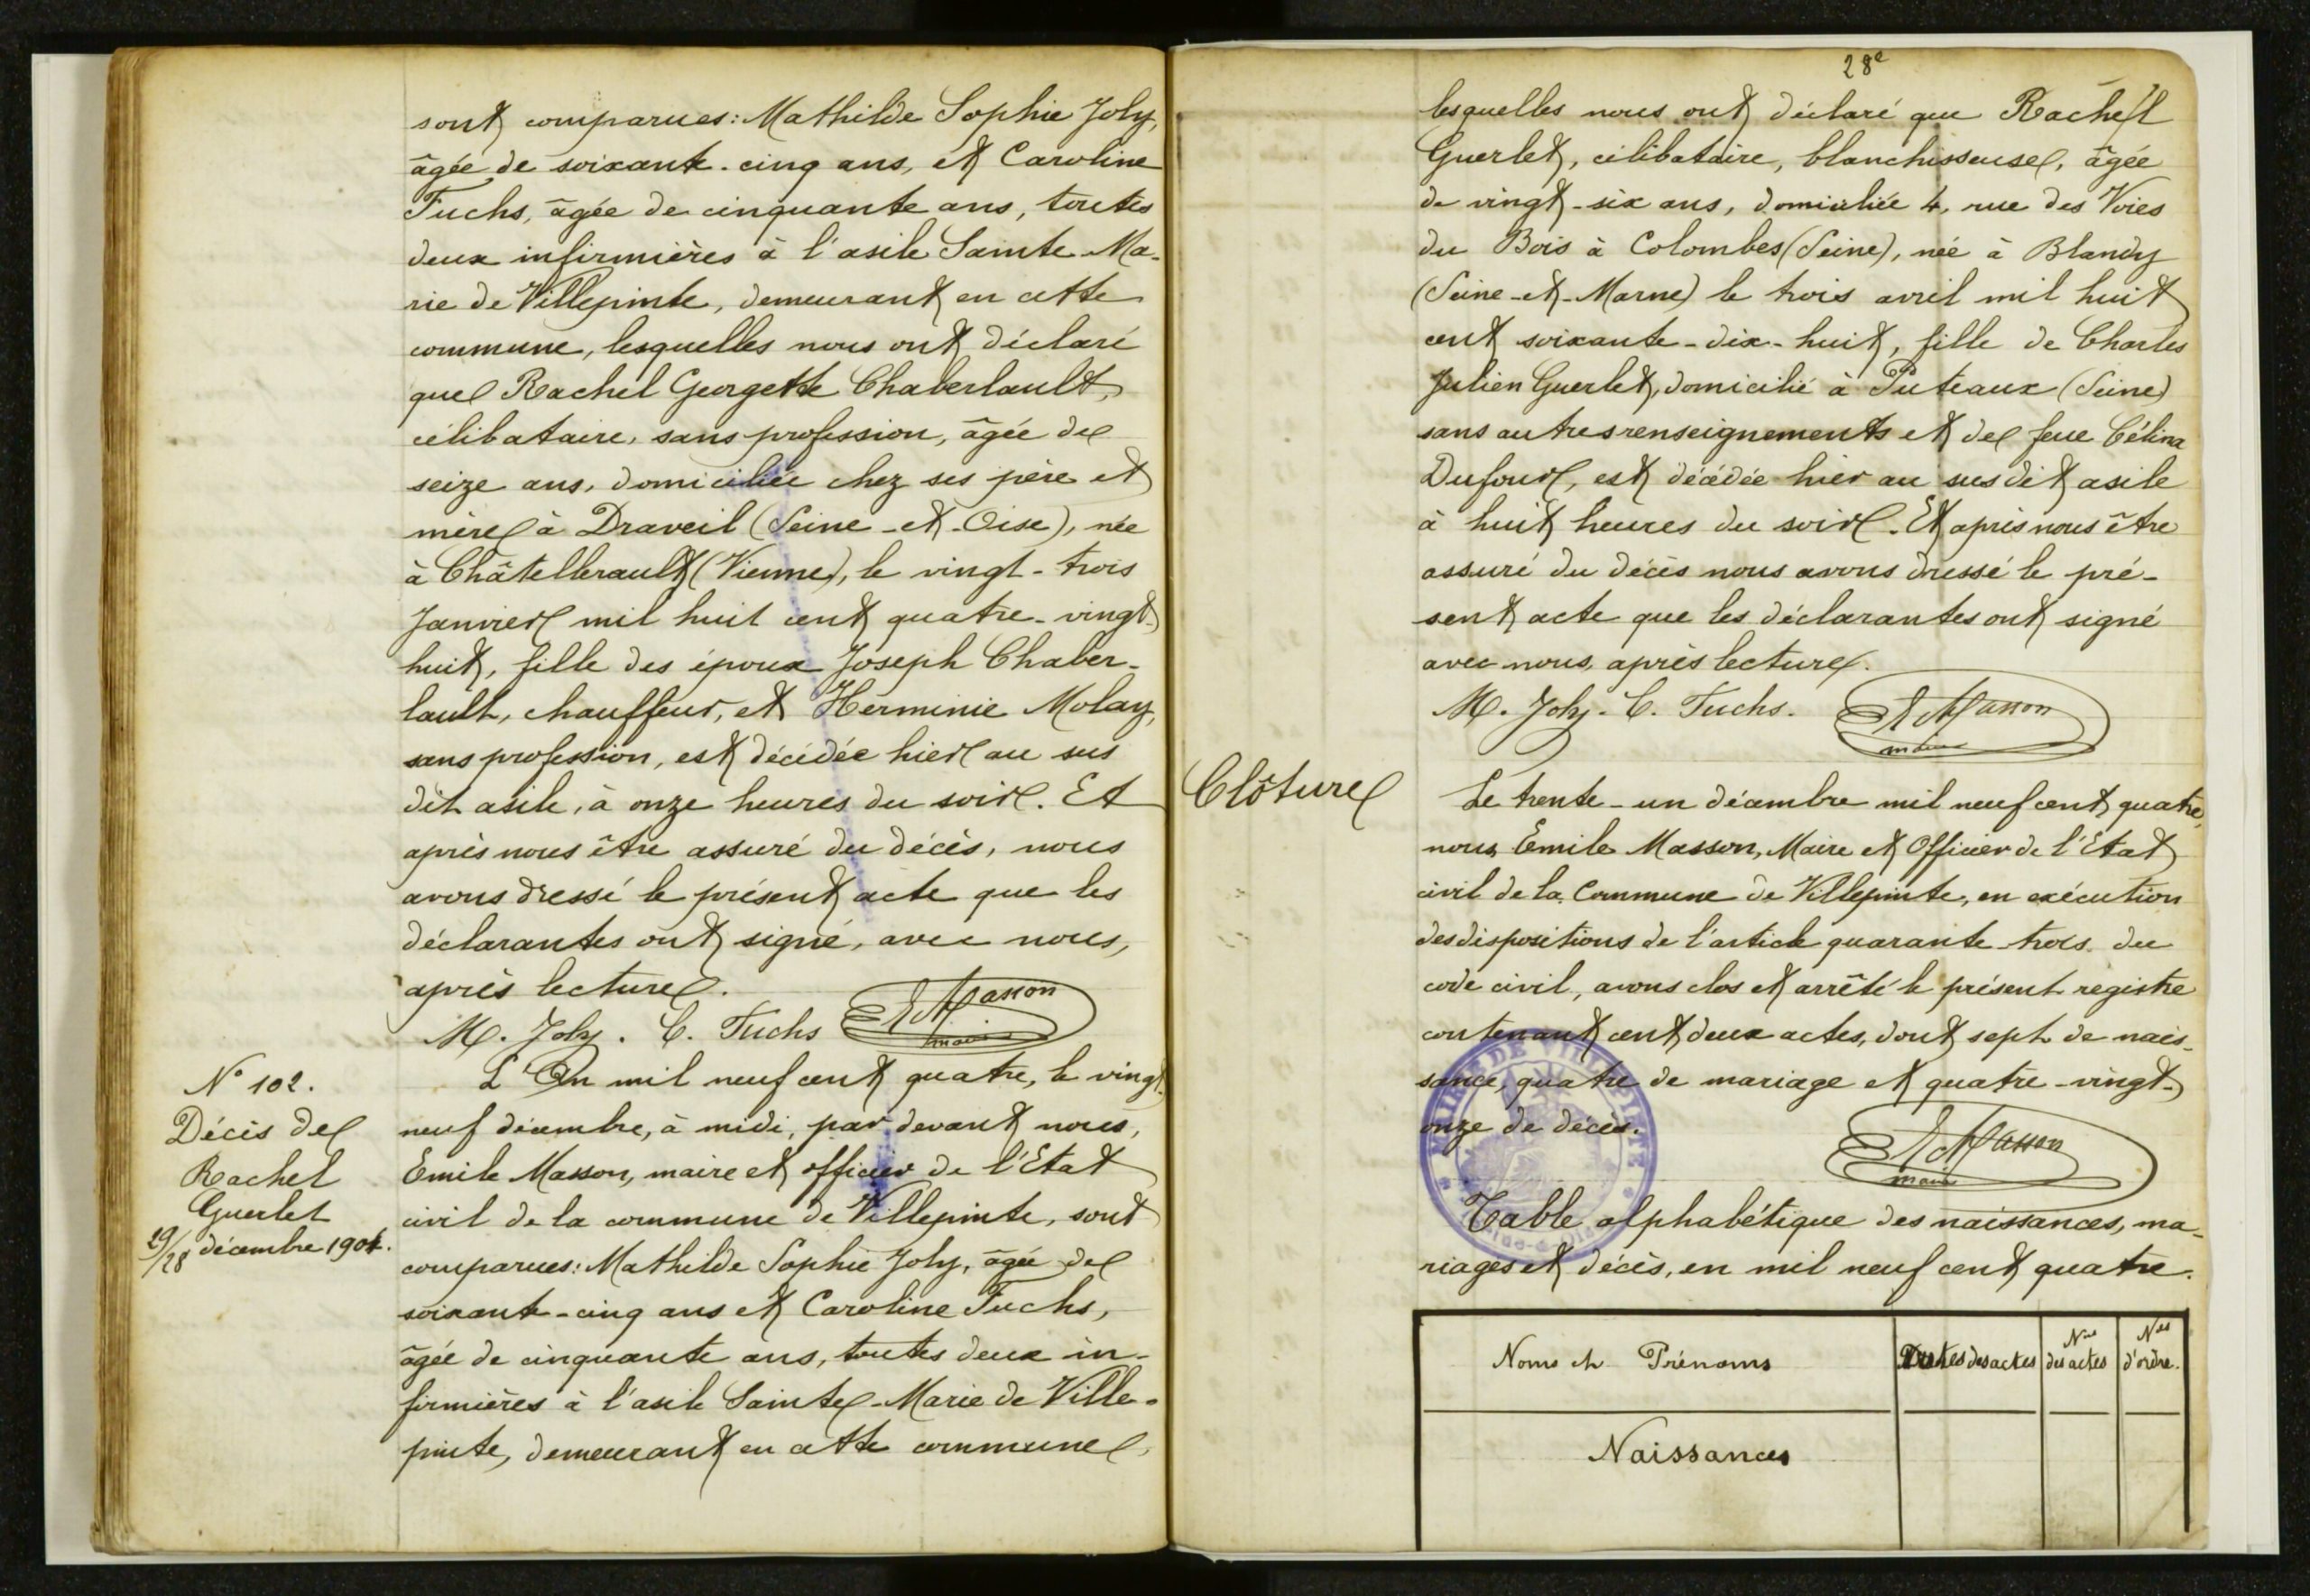 sont comparues: Mathilde Sophie Joly,
âgée de soixante-cinq ans, et Caroline
Fuchs, âgée de cinquante ans, toutes
deux infirmières à l'asile Sainte-Ma-
rie de Villepinte, demeurant en cette
commune, lesquelles nous ont déclaré
que Rachel Georgette Chaberlault,
célibataire, sans profession, âgée de
seize ans, domiciliée chez ses père et
mère à Draveil (Seine-et-Oise), née
à Châtellerault (Vienne), le vingt-trois
Janvier mil huit cent quatre-vingt-
huit, fille des époux Joseph Chaber-
lault, chauffeur, et Herminie Molay,
sans profession, est décédée hier au sus
dit asile, à onze heures du soir. Et
après nous être assuré du décès, nous
avons dressé le présent acte que les
déclarantes ont signé, avec nous,
après lecture.
M. Joly. C. Fuchs E Masson
maire
N° 102.
Décès de
Rachel
Guerlet
29/28 décembre 1904.
L'An mil neuf cent quatre, le vingt-
neuf décembre, à midi, par devant nous,
Emile Masson, maire et officier de l'Etat
civil de la commune de Villepinte, sont
comparues: Mathilde Sophie Joly, âgée de
soixante-cinq ans et Caroline Fuchs,
âgée de cinquante ans, toutes deux in-
firmières à l'asile Sainte-Marie de Ville-
pinte, demeurant en cette commune,
28e
lesquelles nous ont déclaré que Rachel
Guerlet, célibataire, blanchisseuse, âgée
de vingt-six ans, domiciliée 4, rue des Voies
du Bois à Colombes (Seine), née à Blandy
(Seine-et-Marne) le trois avril mil huit
cent soixante-dix-huit, fille de Charles
Julien Guerlet, domicilié à Puteaux (Seine)
sans autres renseignements et de feue Célina
Dufour, est décédée hier au susdit asile
à huit heures du soir. Et après nous être
assuré du décès nous avons dressé le pré-
sent acte que les déclarantes ont signé
avec nous, après lecture.
M. Joly. C. Fuchs. E Masson
maire
Clôture
Le trente-un décembre mil neuf cent quatre,
nous Emile Masson, Maire et Officier de l'Etat
civil de la Commune de Villepinte, en exécution
des dispositions de l'article quarante-trois du
code civil, avons clos et arrêté le présent registre
contenant cent deux actes, dont sept de nais-
sance, quatre de mariage et quatre-vingt-
onze de décès.
E Masson
maire
MAIRIE DE VILLEPINTE
Table alphabétique des naissances, ma-
riages et décès, en mil neuf cent quatre.
Noms et Prénoms Dates des actes Nos des actes Nos d'ordre.
Naissances